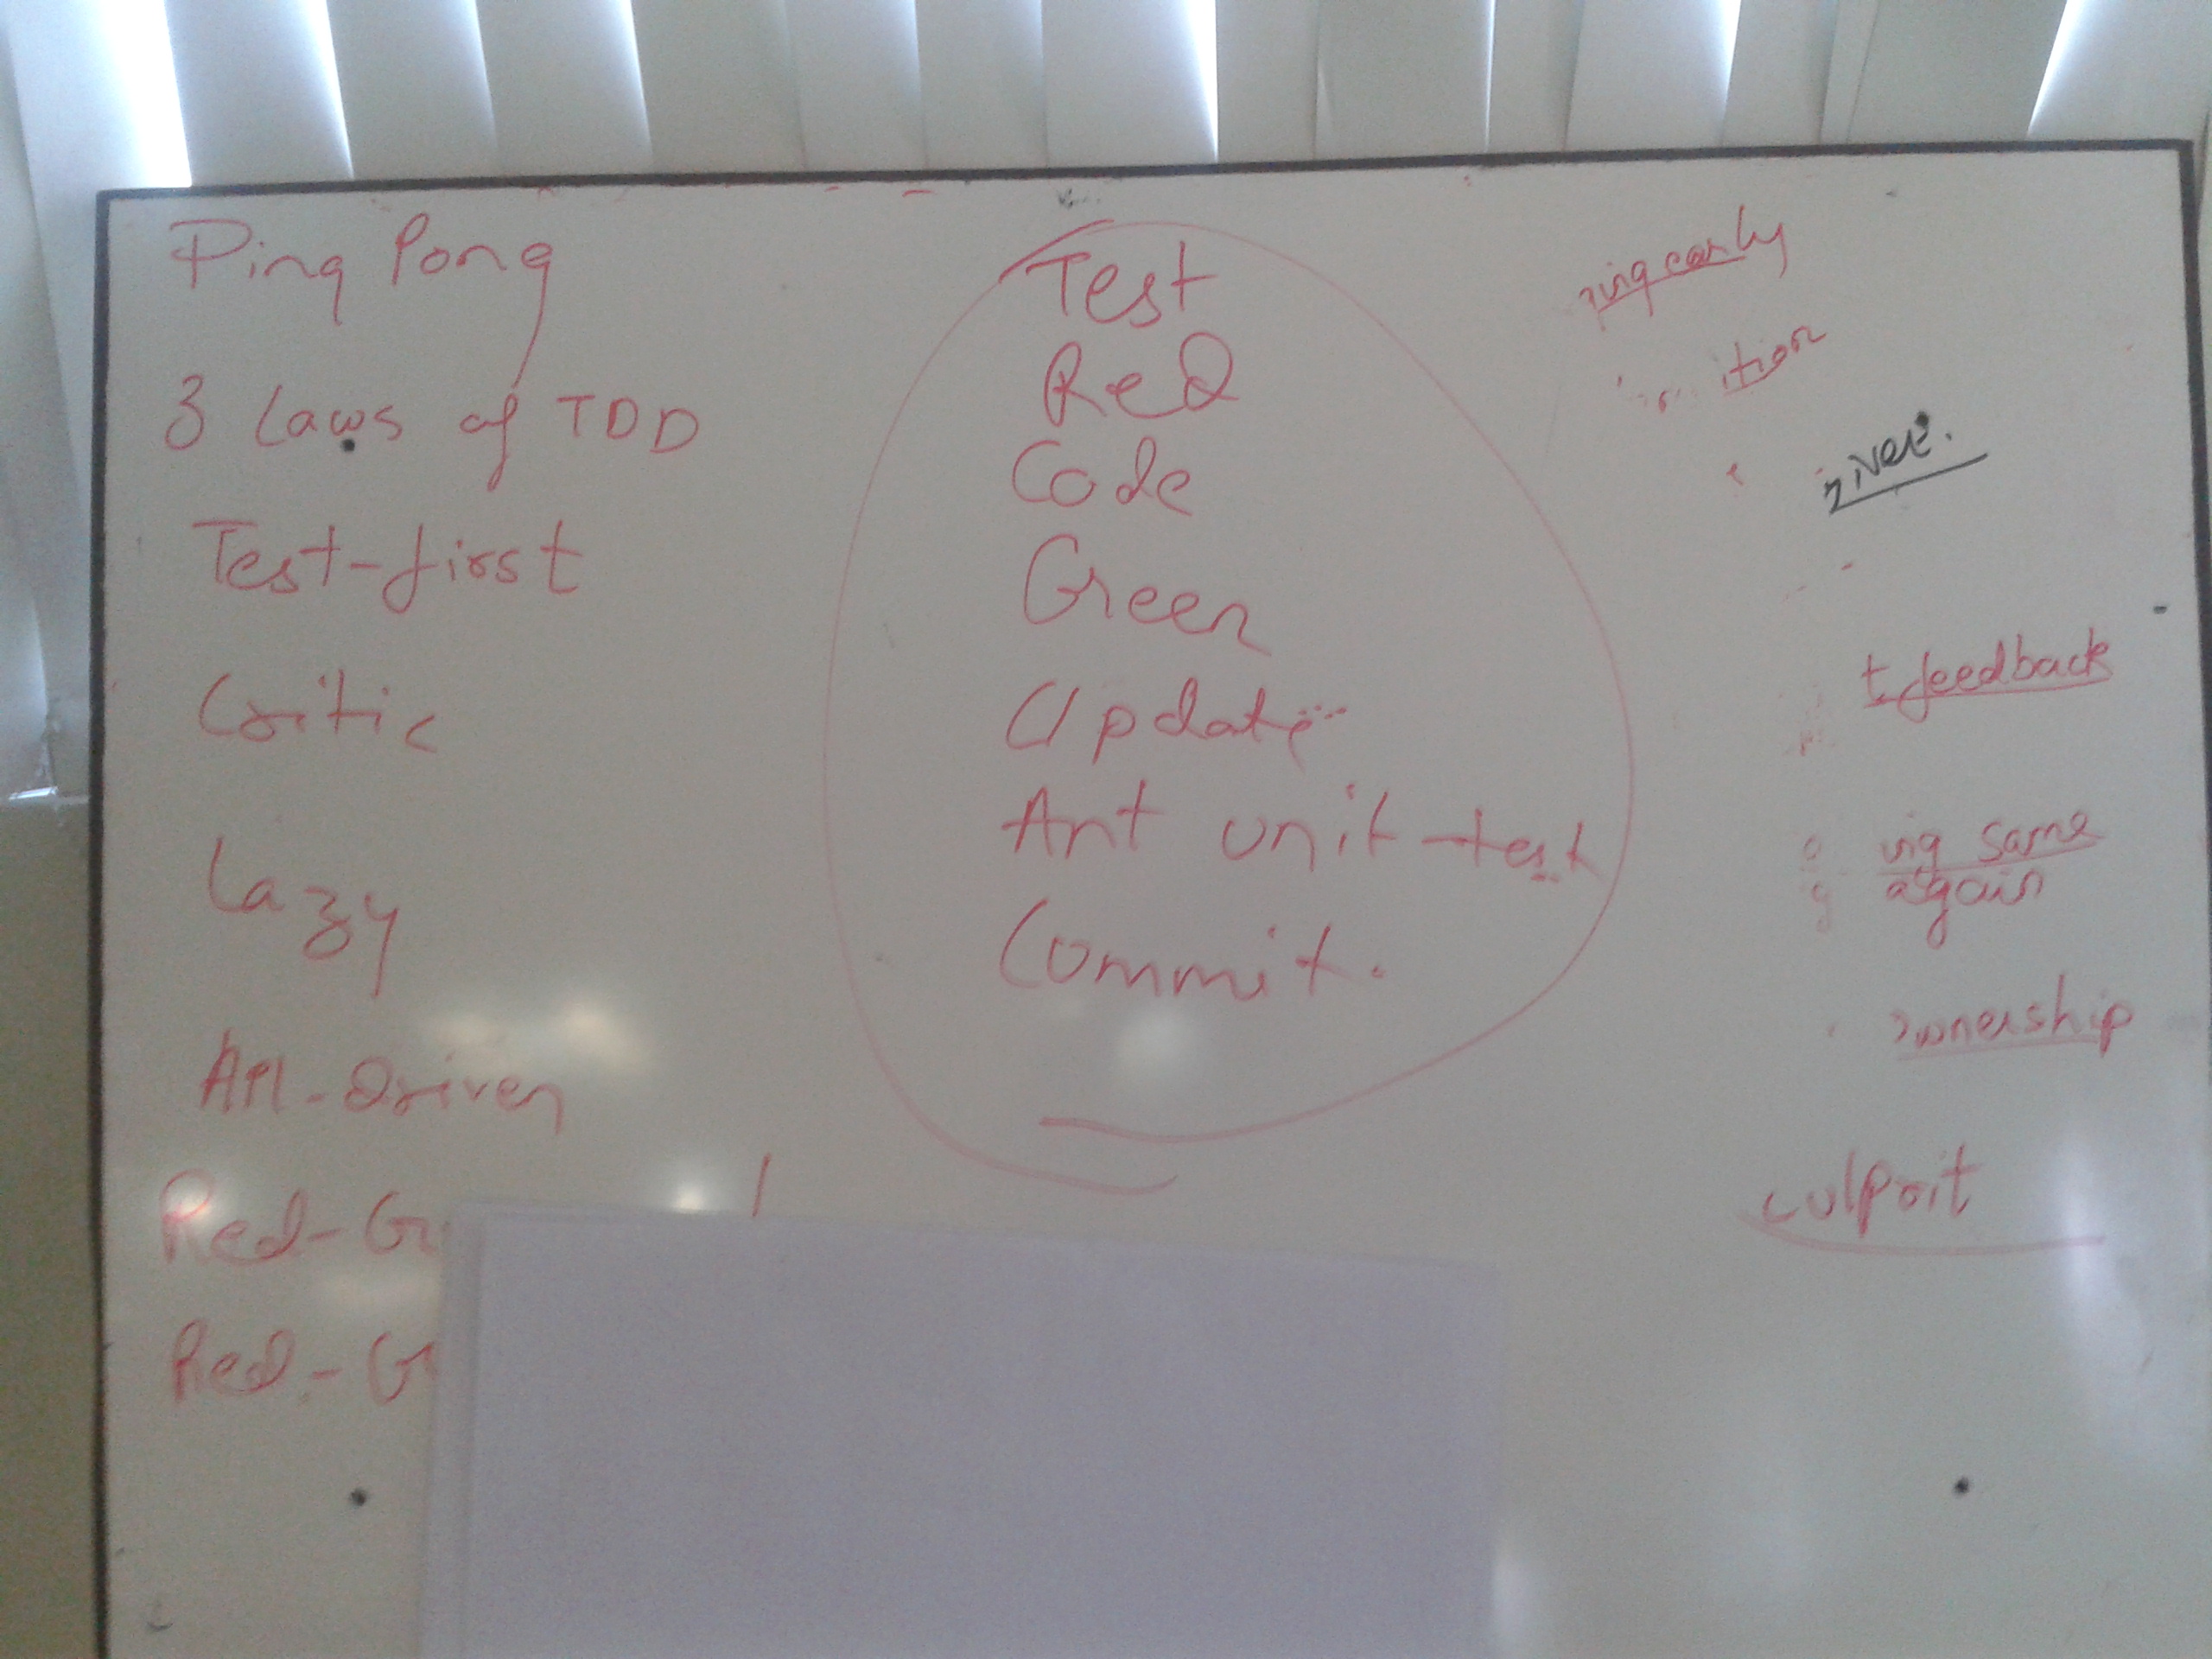 Ping Pong
3 Laws of TDD
Test-first
Critic
Lazy
API-Driven
Red-G
Red-G
Test
Red
Code
Green
Update
Ant unit-test
Commit.
early
ition
t feedback
ing same
again
wnership
culprit